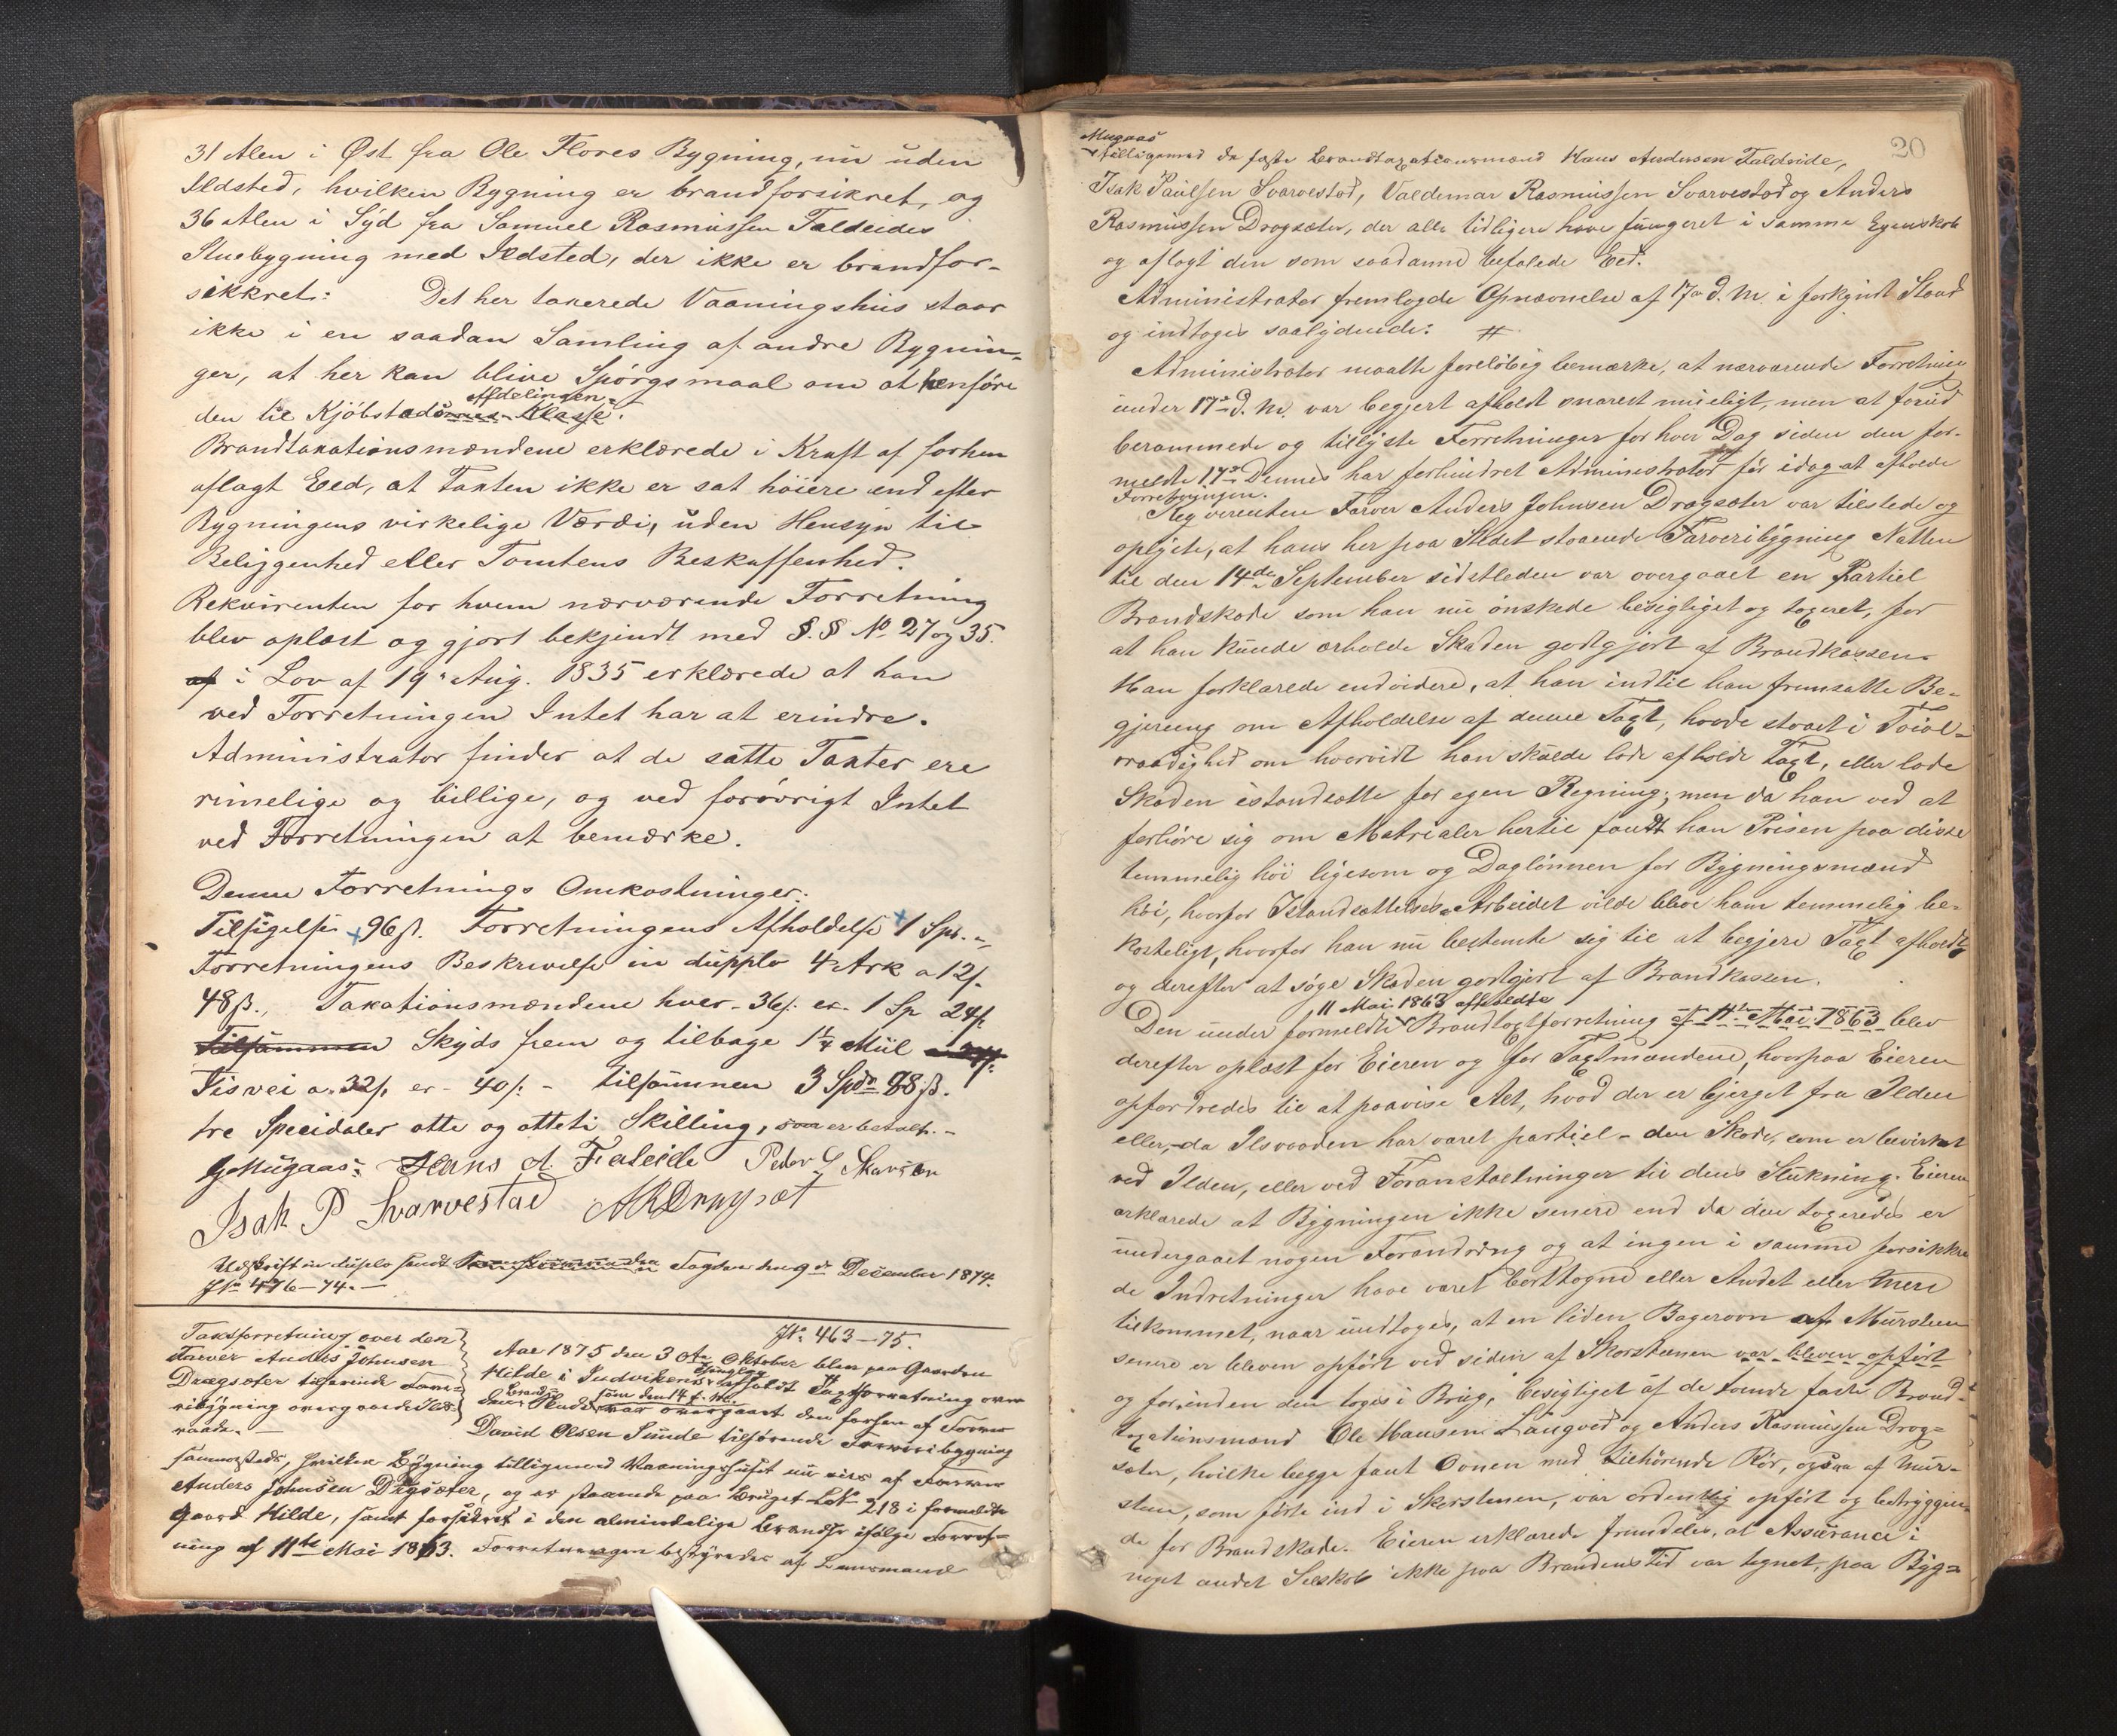 31 Alen i Øst fra Ole Flores Bygning, nu uden
Ildsted, hvilken Bygning er brandforsikret, og
36 Alen i Syd fra Samuel Rasmussen Faldeides
Stuebygning med Ildsted, der ikke er brandfor-
sikkret: Det her taxerede Vaaningshus staar
ikke i en saadan Samling af andre Bygnin-
ger, at her kan blive Spörgsmaal om at henföre
den til Kjöbstadernes Klasse. Afdelingen.
Brandtaxationsmændene erklærede i Kraft af forhen
aflagt Eed, at Taxten ikke er sat höiere end efter
Bygningens virkelige Værdi, uden Hensyn til
Beliggenhed eller Tomtens Beskaffenhed.
Rekvirenten for hvem nærværende Forretning
blev oplæst og gjort bekjendt med §.§ No 27 og 35.
af i Lov af 19 Aug. 1835 erklærede at han
ved Forretningen Intet har at erindre.
Administrator finder at de satte Taxter ere
rimelige og billige, og ved forövrigt Intet
ved Forretningen at bemærke.
Denne Forretnings Omkostninger:
Tilsigelse 96 ß. Forretningens Afholdelse 1 Spd. „
Forretningens Beskrivelse in dupplo 4 Ark a 12ß.
48ß., Taxationsmændene hver 36ß. er 1 Sp 24ß.
Tilsammen Skyds frem og tilbage 1 1/4 Miil
Tisvei a. 32ß. er - 40ß. - tilsammen 3 Spd. 88ß.
tre Speeidaler otte og otteti Skilling, som er betalt. -
G Mugaas. Hans A. Faleide Peder S Skarstèn
Isak P Svarvestad A R Dragsæt
Udskrift in duplo sendt Fogden den 9de December 1874.
J№ 476-74. -
J№ 463-75.
Taxtforretning over den
Farver Anders Johnsen
Dragsæter tilhørende Farve-
ribygning overgaaede Ild-
vaade. -
Aar 1875 den 30te Oktober blev paa Gaarden
Hilde i Indvikens Thinglag afholdt Tagtforretning over
den Brand-Skade som den 14 f. M. var overgaaet den forhen af Farver
David Olsen Sunde tilhørende Farveribygning
sammesteds, hvilken Bygning tilligemed Vaaningshuset nu eies af Farver
Anders Johnsen Dragsæter, og er staaende paa Bruget L№ 218 i formeldte
Gaard Hilde, samt forsikret i den almindelige Brandk. ifølge Forret-
ning af 11te Mai 1863. Forretningen bestyredes af Lensmand
20
Mugaas
tilligemed de faste Brandtaxationsmænd Hans Andersen Faldeide,
Isak Paulsen Svarvestad, Valdemar Rasmussen Svarvestad og Anders
Rasmussen Dragsæter, der alle tidligere have fungeret i samme Egenskab
og aflagt den som saadanne befalede Eed.
Administrator fremlagde Opnævnelse af 17de d. M. i forkynt Stand
og indtoges saalydende: #
Administrator maatte foreløbig bemærke, at nærværende Forretning
under 17de d. M. var begjert afholdt snarest mueligt, men at forud
berammede og tillyste Forretninger for hver Dag siden den for-
meldte 17de Dennes har forhindret Administrator før idag at afholde
Forretningen.
Reqverenten Farver Anders Johnsen Dragsæter var tilstede og
oplyste, at hans her paa Stedet staaende Farveribygning Natten
til den 14de September sidstleden var overgaaet en Partiel
Brandskade som han nu ønskede besigtiget og taxeret, for
at han kunde erholde Skaden godtgjort af Brandkassen.
Han forklarede endvidere, at han indtil han fremsatte Be-
gjering om Afholdelse af denne Tagt, havde staaet i Tvivl-
raadighed om hvorvidt han skulde lade afholde Tagt, eller lade
Skaden istandsætte for egen Regning; men da han ved at
forhöre sig om Matrialer hertil fandt han Prisen paa disse
temmelig höi ligesom og Daglönnen for Bygningsmænd
höi, hvorfor Istandsættelses-Arbeidet vilde blive ham temmelig be-
kosteligt, hvorfor han nu bestemte sig til at begjere Tagt afholdt
og derefter at söge Skaden godtgjort af Brandkassen.
11 Mai 1863 afholdte
Den under formeldte Brandtagtforretning af 11te Mai 1863 blev
derefter oplæst for Eieren og for Tagtmændene, hvorpaa Eieren
opfordredes til at paavise Alt, hvad der er bjerget fra Ilden
eller, da Ilsvaaden har været partiel - den Skade, som er bevirket
ved Ilden, eller ved Foranstaltninger til dens Slukning. Eieren
erklærede at Bygningen ikke senere end da den taxeredes er
undergaaet nogen Forandring og at ingen i samme forsikre-
de Indretninger have været borttagne eller Andet eller mere
tilkommet, naar undtages, at en liden Bagerovn af Mursteen
senere er bleven opført ved siden af Skorstenen var bleven opført
og forinden den toges i Brug, besigtiget af de tvende faste Brand-
taxationsmænd Ole Hansen Langved og Anders Rasmussen Drag-
sæter, hvilke begge fant Ovnen med tilhörende Rör, ogsaa af Mur-
steen, som förte ind i Skorstenen, var ordentlig opfört og betryggen-
de for Brandskade. Eieren erklærede fremdeles, at Assurance i
noget andet Selskab ikke paa Brandens Tid var tegnet, paa Byg-